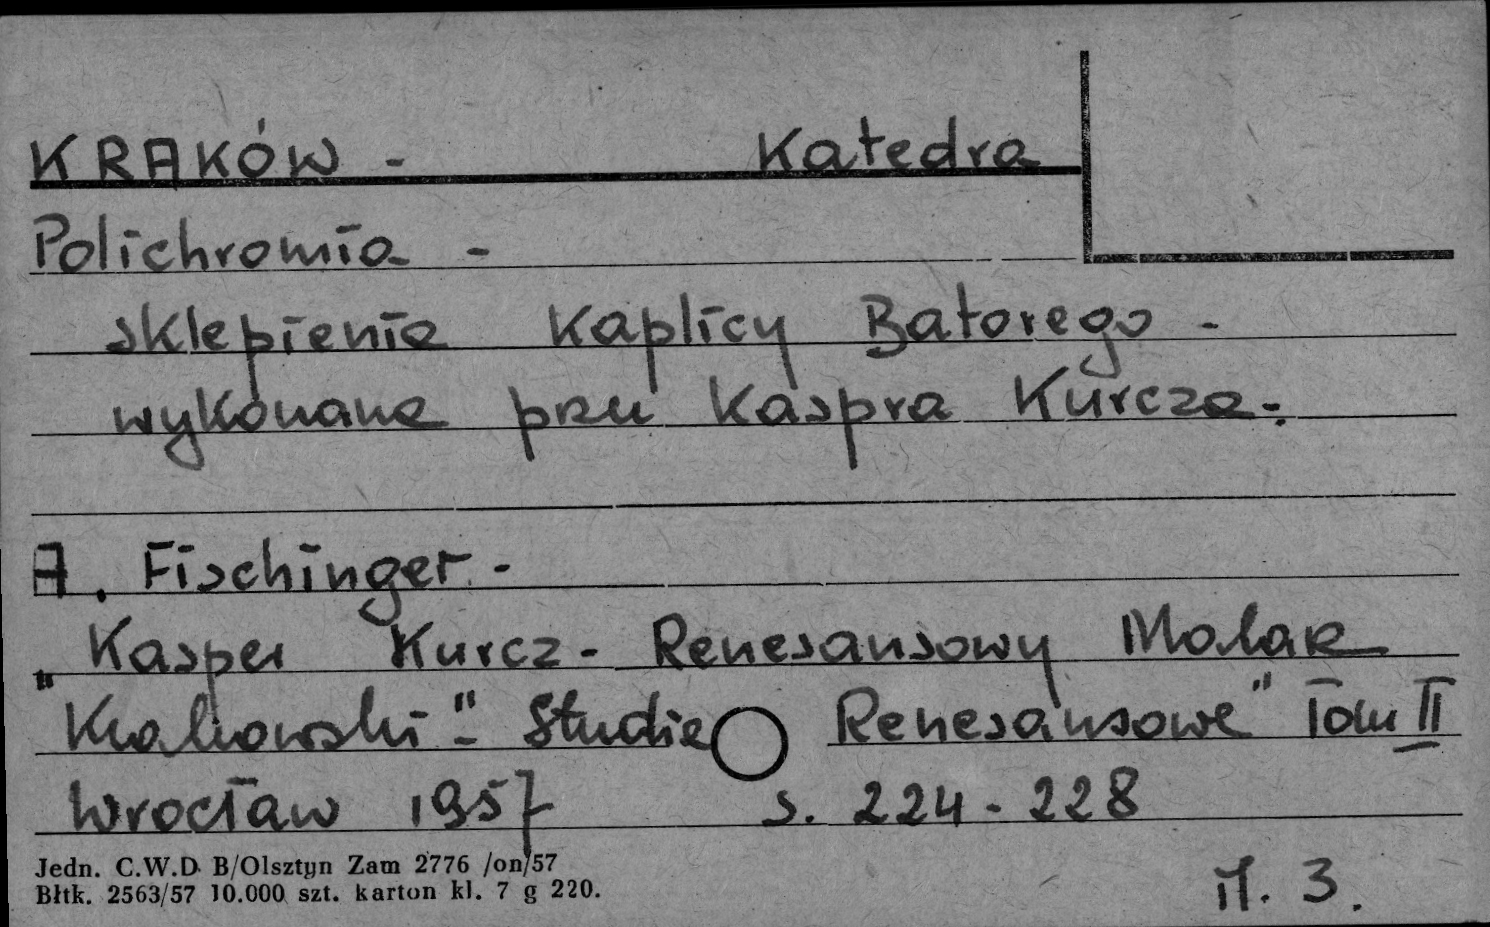 KRAKÓW - Katedra
Polichromia -
sklepienia Kaplicy Batorego -
wykonana przez Kaspra Kurcza.
A. Fischinger. -
"Kasper Kurcz - Renesansowy Malarz
Krakowski" - Studia Renesansowe" Tom II
Wrocław 1957 s. 224 - 228
Jedn. C.W.D. B/Olsztyn Zam 2776 /on/57
Błtk. 2563/57 10.000 szt. karton kl. 7 g 220.
il. 3.